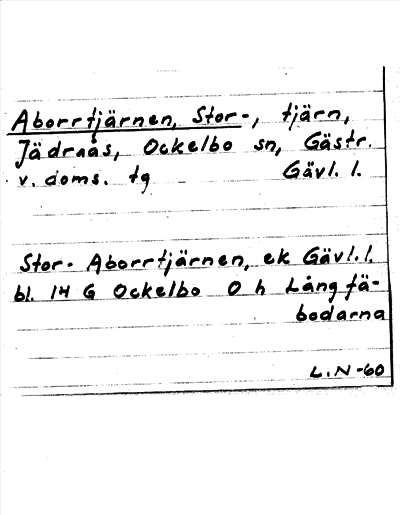 Aborrtjärnen, Stor-, tjärn,
Jädraås, Ockelbo sn, Gästr.
v. doms. tg Gävl. l.
Stor- Aborrtjärnen, ek Gävl. l.
bl. 14 G Ockelbo O h Långfä-
bodarna
L.N-60